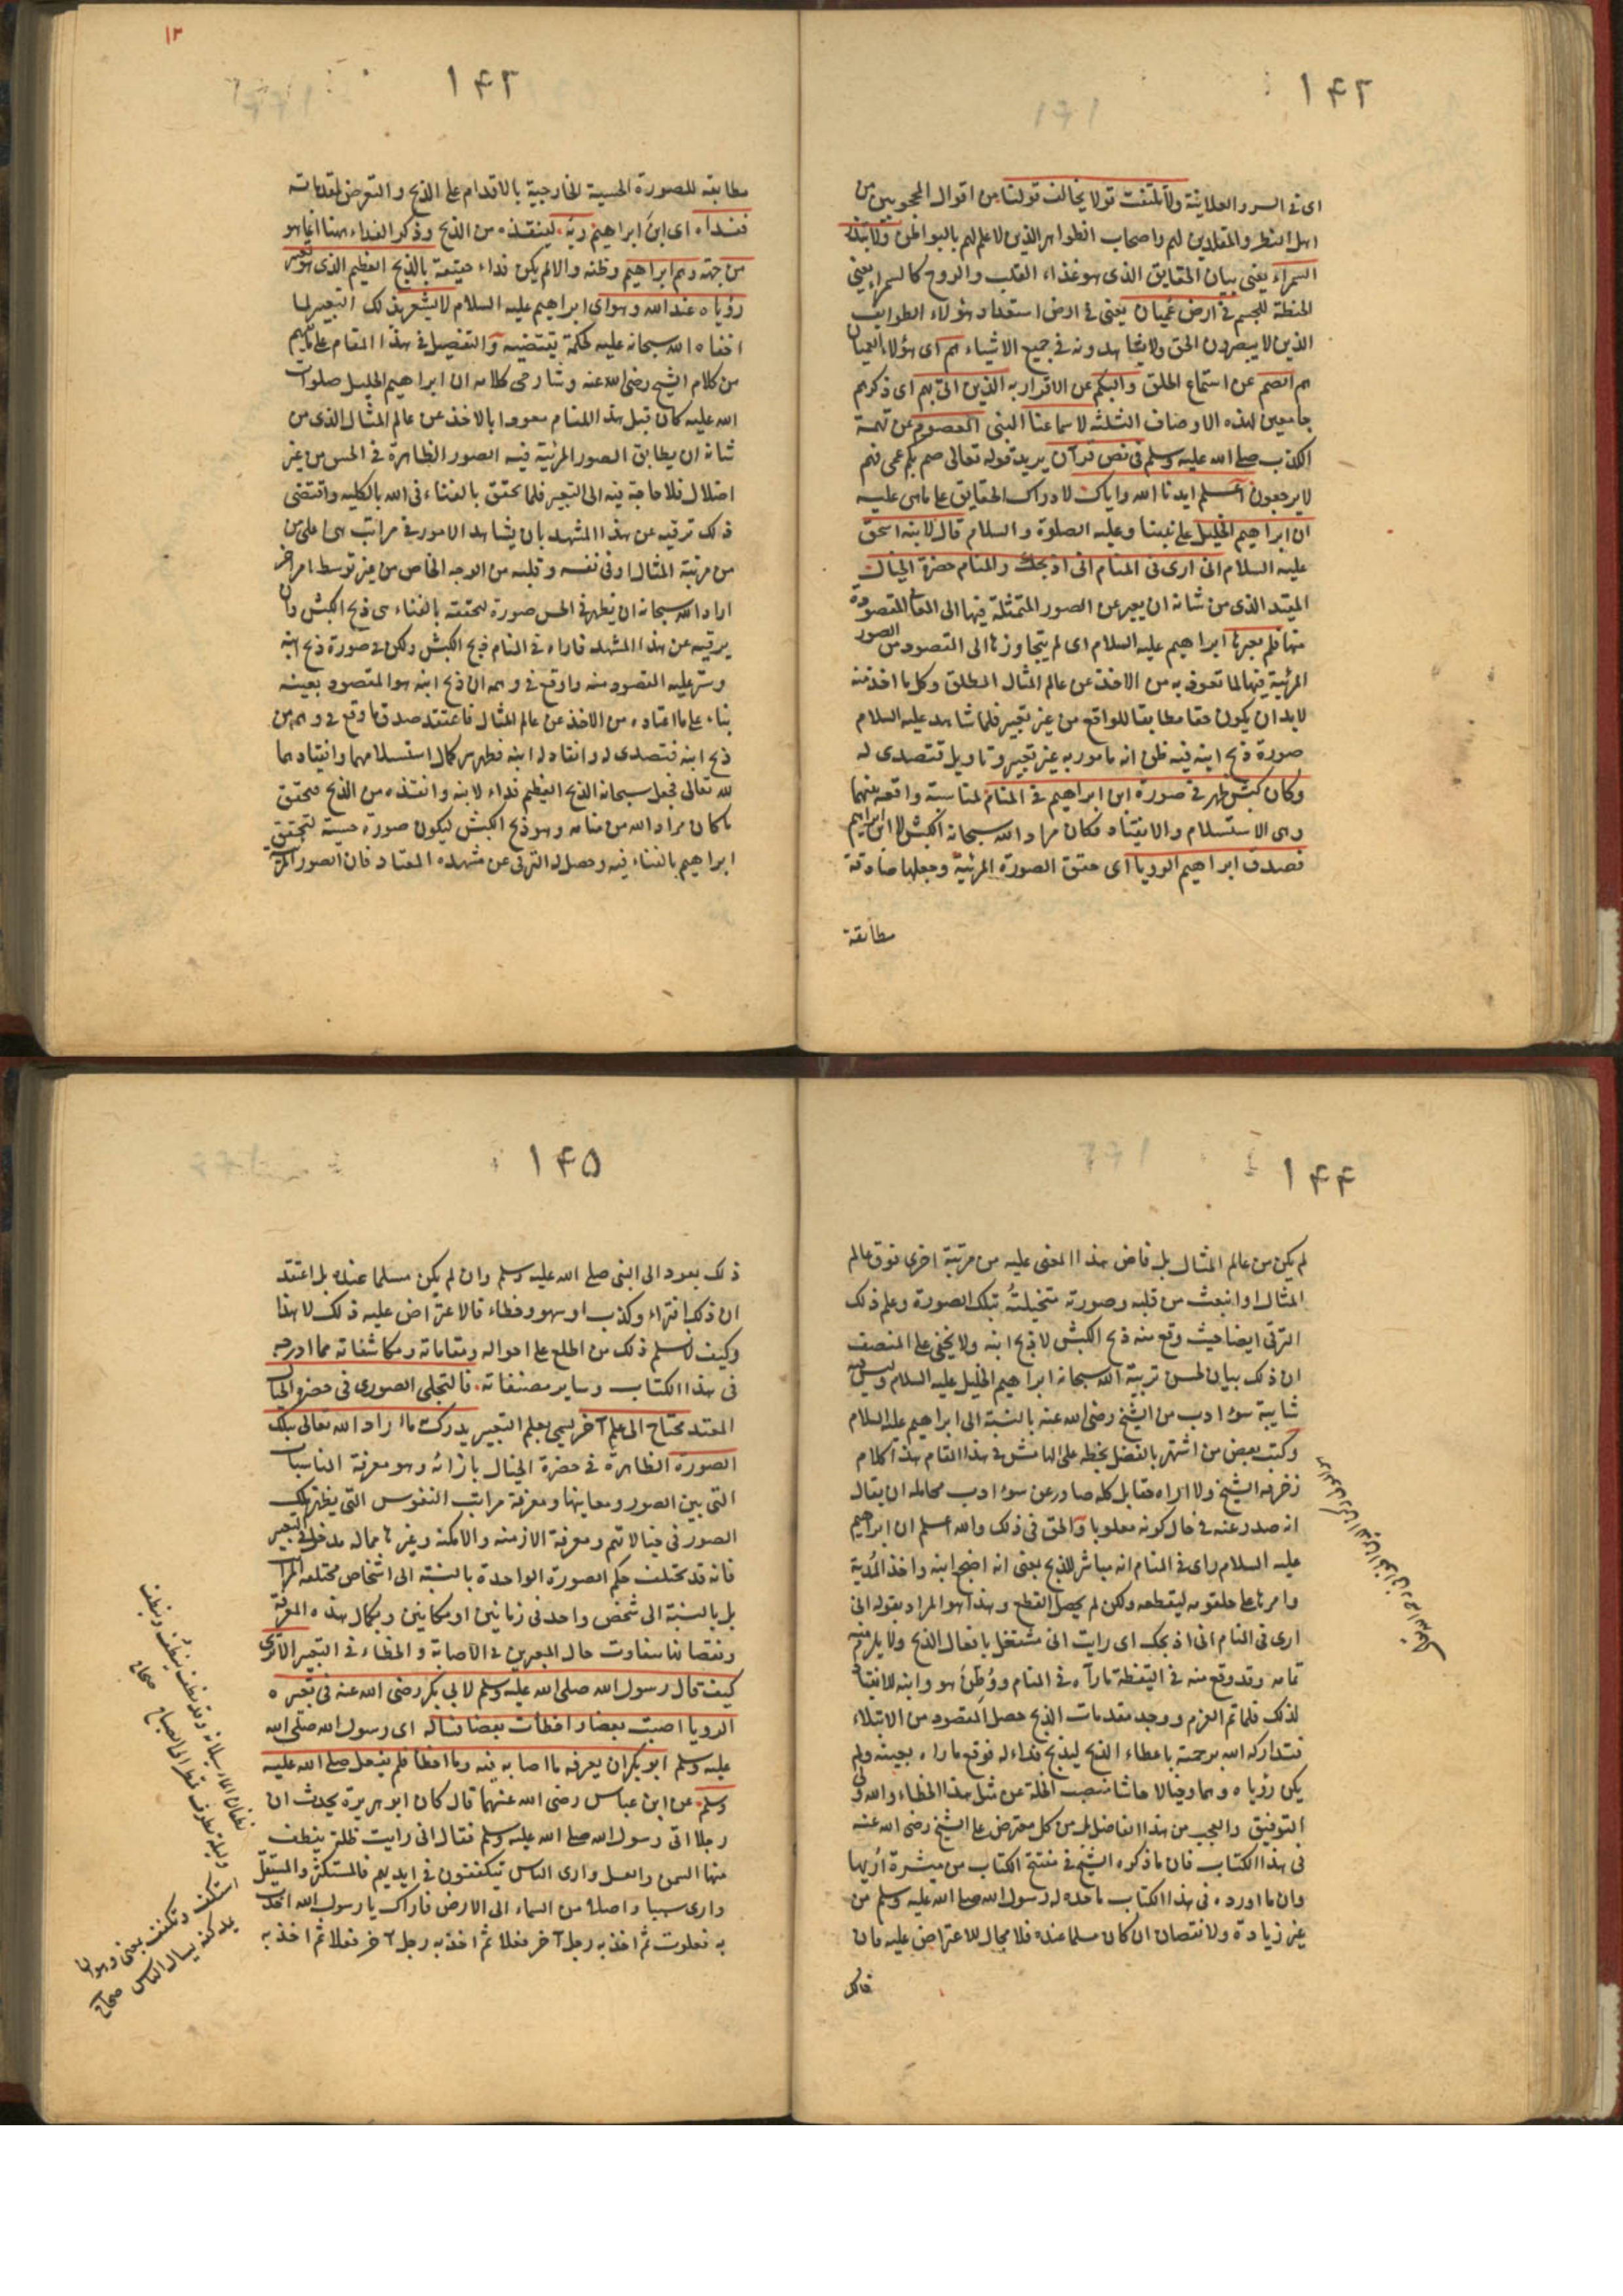 ١٤٢
اى فى السر والعلانية ولا تلتفت قولا يخالف قولنا من اقوال المحجوبين من
اهل النظر والمقلدين لهم واصحاب الظواهر الذين لا علم لهم بالبواطن ولا تبذر
السمراء يعنى بيان الحقايق الذى هو غذاء القلب والروح كالسمراء يعنى
الحنطة للجسم فى ارض عميان يعنى فى ارض استعداد هؤلاء الطوايف
الذين لا يبصرون الحق ولا يشاهدونه فى جميع الاشياء هم اى هؤلاء العميان
هم الصم عن استماع الحق والبكم عن الاقرار به الذين اتى بهم اى ذكرهم
جامعين لهذه الاوصاف الثلثة لاسماعنا النبى المعصوم عن تهمة
الكذب صلى الله عليه وسلم فى نص قرآن يريد قوله تعالى صم بكم عمى فهم
لا يرجعون اعلم ايدنا الله واياك لادراك الحقايق على ما هى عليه
ان ابراهيم الخليل على نبينا وعليه الصلوة والسلام قال لابنه اسحق
عليه السلام انى ارى فى المنام انى اذبحك والمنام حضرة الخيال
المقيد الذى من شانه ان يعبر عن الصور المتمثلة فيها الى المعانى المقصودة
منها فلم يعبرها ابراهيم عليه السلام اى لم يتجاوزها الى المقصود من الصور
المرئية فيها لما تعود به من الاخذ عن عالم المثال المطلق وكل ما اخذ منه
لابد ان يكون حقا مطابقا للواقع من غير تعبير فلما شاهد عليه السلام
صورة ذبح ابنه فيه ظن انه مامور به غير تعبير وتاويل فتصدى له
وكان كبش ظهر فى صورة ابن ابراهيم فى المنام لمناسبة واقعة بينهما
وهى الاستسلام والانقياد فكان مراد الله سبحانه الكبش لا ابن ابراهيم
فصدق ابراهيم الرويا اى حقق الصورة المرئية وجعلها صادقة
مطابقة
١٣
١٤٣
مطابقه للصورة الحسية الخارجية بالاقدام على الذبح والتعرض لمقدماته
ففداه اى ابن ابراهيم ربه لينقذه من الذبح وذكر الفداء ههنا انما هو
من جهة وهم ابراهيم وظنه والا لم يكن فداء حقيقة بالذبح العظيم الذى هو تعبير
رؤياه عند الله وهو اى ابراهيم عليه السلام لا يشعر بذلك التعبير لما
اخفاه الله سبحانه عليه لحكمة تقتضيه والتفصيل فى هذا المقام على ما يفهم
من كلام الشيخ رضى الله عنه وشارحى كلامه ان ابراهيم الخليل صلوات
الله عليه كان قبل هذا المنام معودا بالاخذ عن عالم المثال الذى من
شانه ان يطابق الصور المرئية فيه الصور الظاهرة فى الحس من غير
اختلال فلا حاجة فيه الى التعبير فلما تحقق بالفناء فى الله بالكليه واقتضى
ذلك ترقيه عن هذا المشهد بان يشاهد الامور فى مراتب هى اعلى من
من مرتبة المثال او فى نفسه وقلبه من الوجه الخاص من غير توسط امر اخر
اراد الله سبحانه ان يظهر فى الحس صورة تحققه بالفناء هى ذبح الكبش وان
يرقيه عن هذا المشهد فاراه فى المنام ذبح الكبش ولكن فى صورة ذبح ابنه
وستر عليه المقصود منه واوقع فى وهمه ان ذبح ابنه هو المقصود بعينه
بناء على ما اعتاده من الاخذ عن عالم المثال فاعتقد صدق ما وقع فى وهمه من
ذبح ابنه فتصدى له وانقاد له ابنه فظهر سر كمال استسلامهما وانقيادهما
لله تعالى فجعل سبحانه الذبح العظيم فداء لابنه وانقذه من الذبح فتحقق
ما كان مراد الله من منامه وهو ذبح الكبش ليكون صورة حسية لتحقق
ابراهيم بالفناء فيه وحصل له الترقى عن مشهده المعتاد فان الصور المرئية
١٤٤
لم يكن من عالم المثال بل فاض هذا المعنى عليه من مرتبة اخرى فوق عالم
المثال او انبعث من قلبه وصورته متخيلته بتلك الصورة وعلم ذلك
الترقى ايضا حيث وقع منه ذبح الكبش لا ذبح ابنه ولا يخفى على المنصف
ان ذلك بيان لحسن تربية الله سبحانه ابراهيم الخليل عليه السلام وليس فيه
شايبة سوء ادب من الشيخ رضى الله عنه بالنسبة الى ابراهيم عليه السلام
وكتب بعض من اشتهر بالفضل بخطه على الهامش فى هذا المقام هذا كلام
زخرفه الشيخ ولا اراه حقا بل كله صادر عن سوء ادب محامله ان يقال
انه صدر عنه فى حال كونه مغلوبا والحق فى ذلك والله اعلم ان ابراهيم
عليه السلام راى فى المنام انه مباشر للذبح بمعنى انه اضجع ابنه واخذ المدية
وامرها على حلقومه ليقطعه ولكن لم يحصل القطع وهذا هو المراد بقوله انى
ارى فى المنام انى اذبحك اى رايت انى مشتغل بافعال الذبح ولا يلزم منه
تمامه وقد وقع منه فى اليقظة ما رآه فى المنام ووطن هو وابنه للانقياد
لذلك فلما تم العزم ووجد مقدمات الذبح حصل المقصود من الابتلاء
فتداركه الله برحمته باعطاء الذبح ليذبح فداء له فوقع ما راه بعينه ولم
يكن رؤياه وهما وخيالا حاشا منصب الخلة عن مثل هذا الخطاء والله ولى
التوفيق والعجب من هذا الفاضل بل من كل معترض على الشيخ رضى الله عنه
فى هذا الكتاب فان ما ذكره الشيخ فى مفتتح الكتاب من مبشرة اريها
وان ما اورده فى هذا الكتاب ما حده له رسول الله صلى الله عليه وسلم من
غير زيادة ولا نقصان ان كان مسلما عنده فلا مجال للاعتراض عليه فان
١٤٥
ذلك يعود الى النبى صلى الله عليه وسلم وان لم يكن مسلما عنده بل اعتقد
ان ذلك افتراء وكذب او سهو وخطاء فالاعتراض عليه ذلك لا هذا
وكيف لا نسلم ذلك من اطلع على احواله ومقاماته ومكاشفاته مما ادرجه
فى هذا الكتاب وساير مصنفاته فالتجلى الصورى فى حضرة الخيال
المقيد محتاج الى علم آخر يسمى بعلم التعبير يدرك به ما اراد الله تعالى بتلك
الصورة الظاهرة فى حضرة الخيال بازائه وهو معرفة المناسبات
التى بين الصور ومعانيها ومعرفة مراتب النفوس التى يظهر تلك
الصور فى خيالاتهم ومعرفة الازمنه والامكنه وغيرها مما له مدخل فى التعبير
فانه قد تختلف حكم الصورة الواحدة بالنسبة الى اشخاص مختلفه المراتب
بل بالنسبة الى شخص واحد فى زمانين او مكانين وبكمال هذه المعرفة
ونقصانها تتفاوت حال المعبرين فى الاصابة والخطاء فى التعبير الا ترى
كيف قال رسول الله صلى الله عليه وسلم لابى بكر رضى الله عنه فى تعبيره
الرويا اصبت بعضا واخطأت بعضا فساله اى رسول الله صلى الله
عليه وسلم ابو بكر ان يعرفه ما اصاب فيه وما اخطأ فلم يفعل صلى الله عليه
وسلم عن ابن عباس رضى الله عنهما قال كان ابو هريرة يحدث ان
رجلا اتى رسول الله صلى الله عليه وسلم فقال انى رايت ظلة ينطف
منها السمن والعسل وارى الناس يتكففون فى ايديهم فالمستكثر والمستقل
وارى سببا واصلا من السماء الى الارض فاراك يا رسول الله اخذت
به فعلوت ثم اخذ به رجل آخر فعلا ثم اخذ به رجل آخر فعلا ثم اخذ به
نطفان الماء سيلانه وقد نطف ينطف وينطف
وليلة نطوف تمطر الى الصباح صحاح
استكف وتكفف بمعنى وهو ان
يمد كفه يسال الناس صحاح